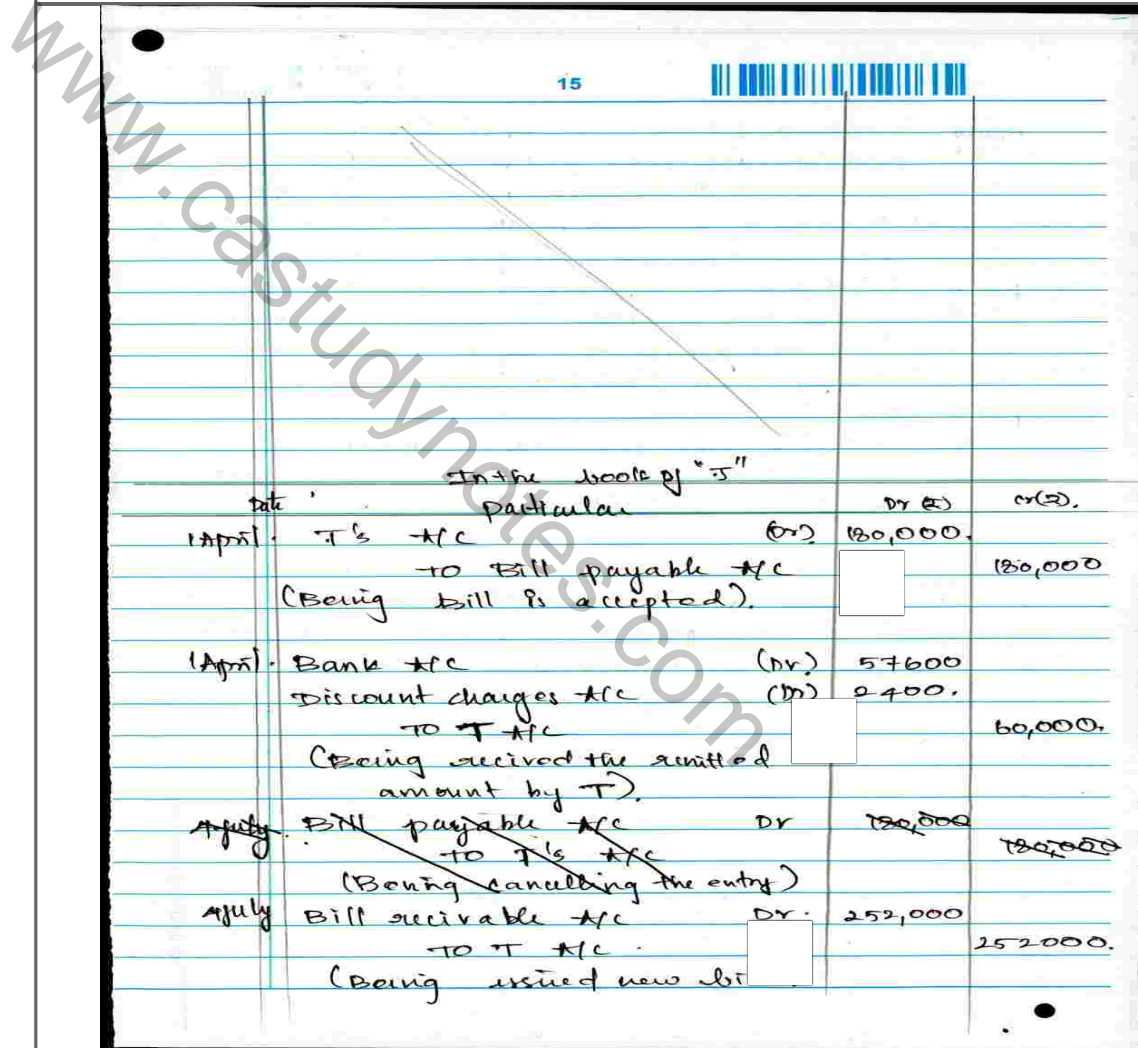 www.castudynotes.com
15
In the book of "J"
Date particular Dr (₹) cr(₹).
1 April. T's A/C (Dr) 180,000.
TO Bill payable A/C 180,000
(Being bill is accepted).
1 April. Bank A/C (Dr) 57600
Discount charges A/C (Dr) 2400.
TO T A/C 60,000.
(Being recived the remitted
amount by T).
4 july. Bill payable A/C Dr 180,000
TO T's A/C 180,000
(Being cancelling the entry)
4 july Bill recivable A/C Dr. 252,000
TO T A/C. 252000.
(Being issued new bi